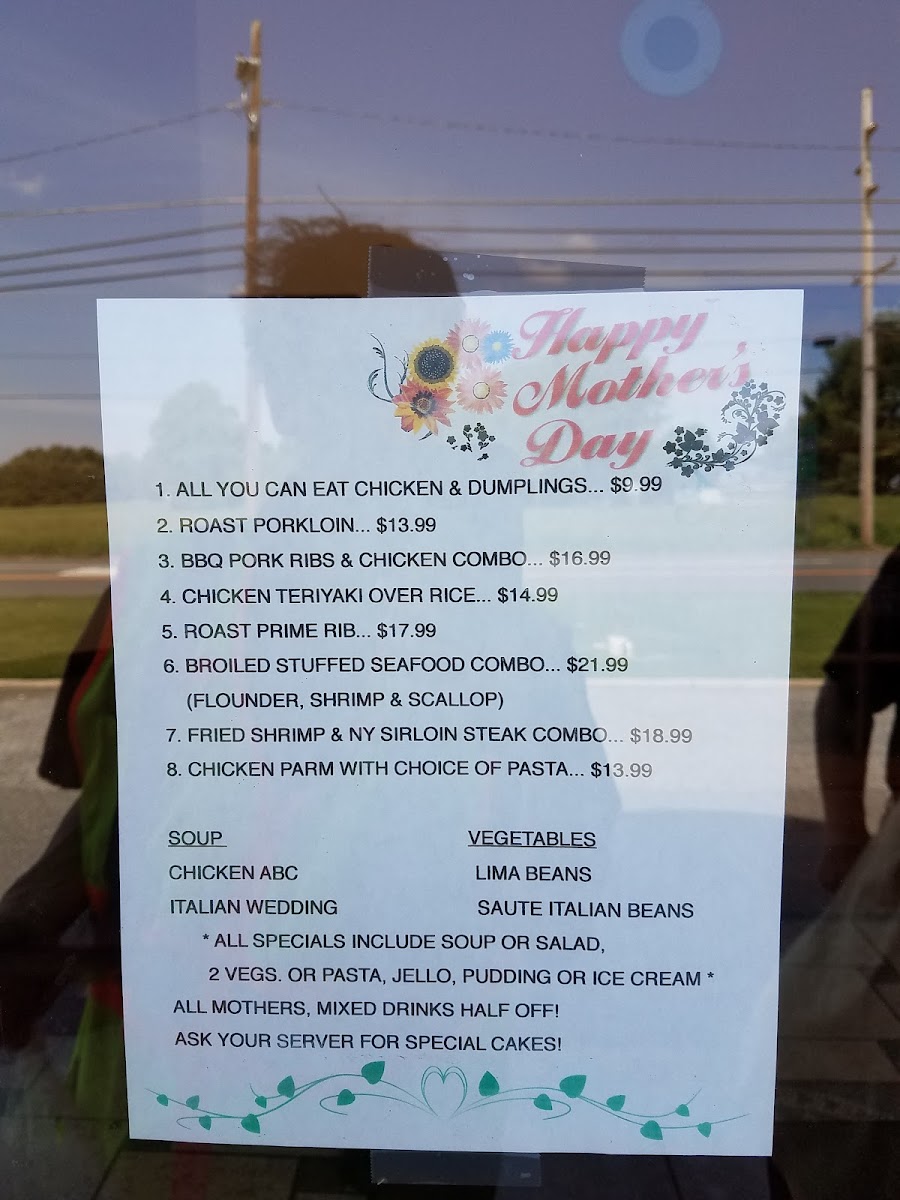 Happy
Mother's
Day
1. ALL YOU CAN EAT CHICKEN & DUMPLINGS... $9.99
2. ROAST PORKLOIN... $13.99
3. BBQ PORK RIBS & CHICKEN COMBO... $16.99
4. CHICKEN TERIYAKI OVER RICE... $14.99
5. ROAST PRIME RIB... $17.99
6. BROILED STUFFED SEAFOOD COMBO... $21.99
(FLOUNDER, SHRIMP & SCALLOP)
7. FRIED SHRIMP & NY SIRLOIN STEAK COMBO... $18.99
8. CHICKEN PARM WITH CHOICE OF PASTA... $13.99
SOUP VEGETABLES
CHICKEN ABC LIMA BEANS
ITALIAN WEDDING SAUTE ITALIAN BEANS
* ALL SPECIALS INCLUDE SOUP OR SALAD,
2 VEGS. OR PASTA, JELLO, PUDDING OR ICE CREAM *
ALL MOTHERS, MIXED DRINKS HALF OFF!
ASK YOUR SERVER FOR SPECIAL CAKES!